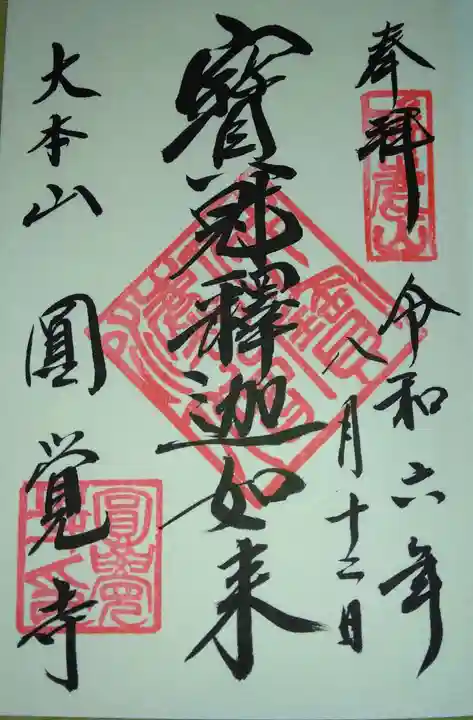 奉拜
令和六年
八月十二日
寶冠釋迦如来
大本山 圓覺寺